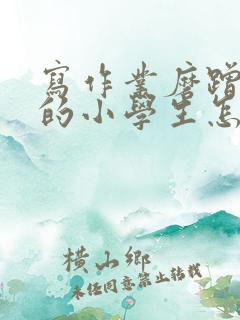 寫作業磨蹭
的小學生怎
橫山鄉
未經同意禁止轉載